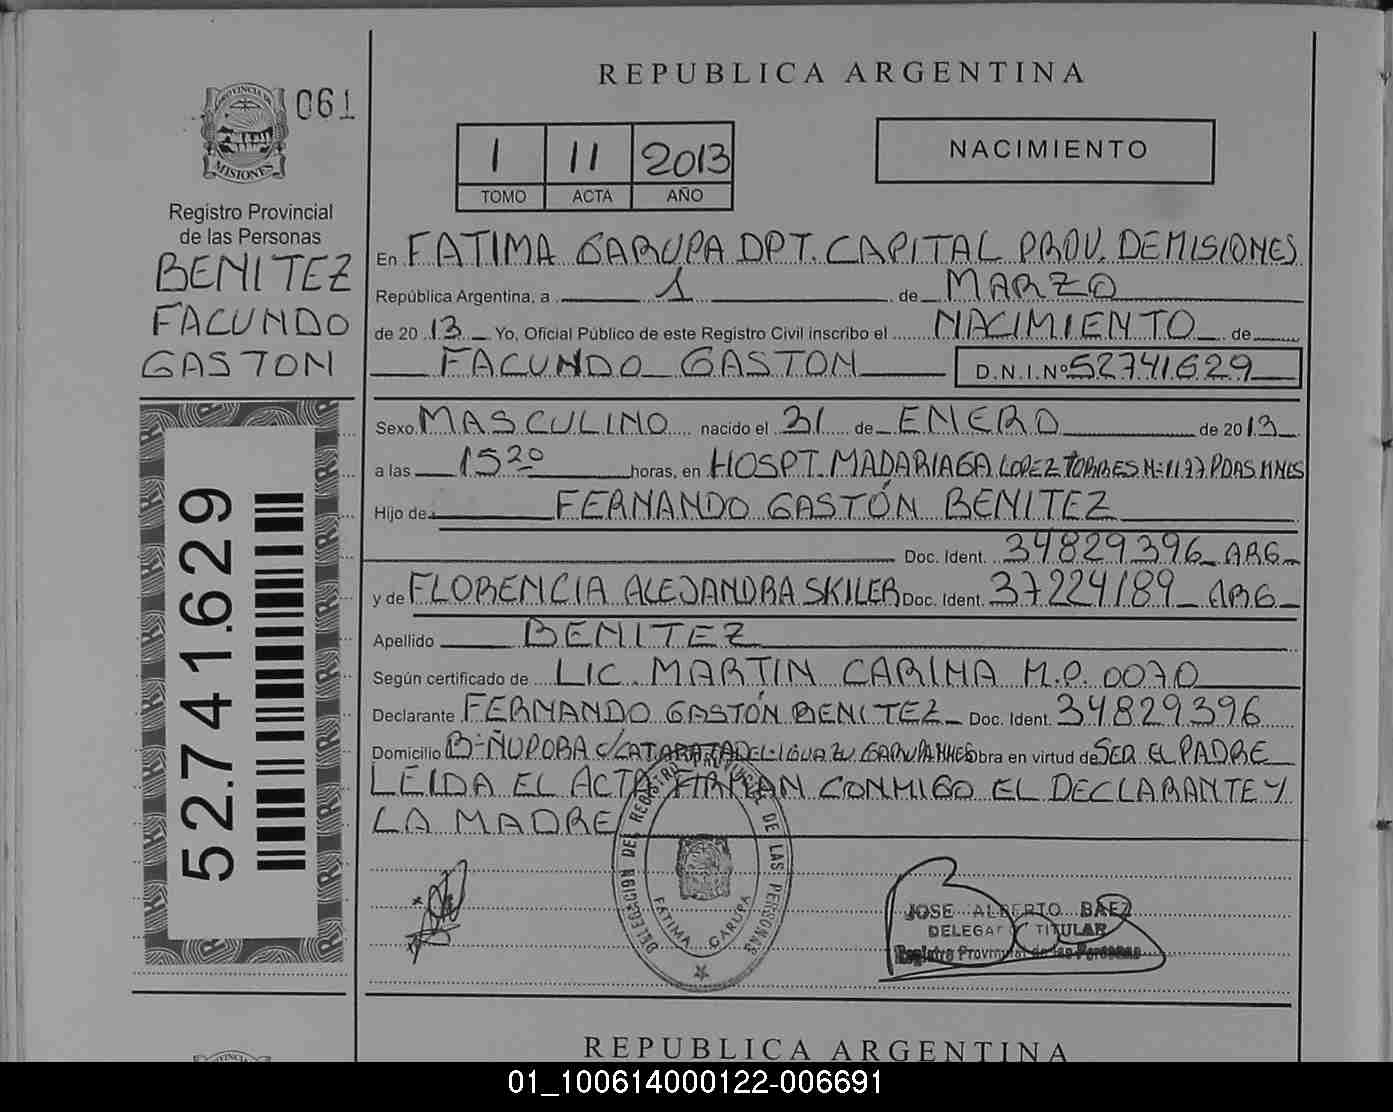 REPUBLICA ARGENTINA
061
PROVINCIA DE
MISIONES
1 11 2013
TOMO ACTA AÑO
NACIMIENTO
Registro Provincial
de las Personas
BENITEZ
FACUNDO
GASTON
52.741.629
En FATIMA GARUPA DPT. CAPITAL PROV. DE MISIONES
República Argentina, a 1 de MARZO
de 2013 Yo, Oficial Público de este Registro Civil inscribo el NACIMIENTO de
FACUNDO GASTON D.N.I.Nº 52741629
Sexo MASCULINO nacido el 31 de ENERO de 2013
a las 15 20 horas, en HOSPT. MADARIAGA LOPEZ TORRES Nº 1177 PDAS MNES
Hijo de FERNANDO GASTÓN BENITEZ
Doc. Ident. 34829396 ARG
y de FLORENCIA ALEJANDRA SKILER Doc. Ident. 37224189 ARG
Apellido BENITEZ
Según certificado de LIC. MARTIN CARINA M.P. 0070
Declarante FERNANDO GASTÓN BENITEZ Doc. Ident. 34829396
Domicilio Bº ÑU PORA C/ CATARATA DEL IGUAZU GARUPA MNES Obra en virtud de SER EL PADRE
LEIDA EL ACTA FIRMAN CONMIGO EL DECLARANTE Y
LA MADRE
DELEGACION DEL REGISTRO PROVINCIAL DE LAS PERSONAS
FATIMA GARUPA
JOSE ALBERTO BAEZ
DELEGADO TITULAR
Registro Provincial de las Personas
REPUBLICA ARGENTINA
01_100614000122-006691